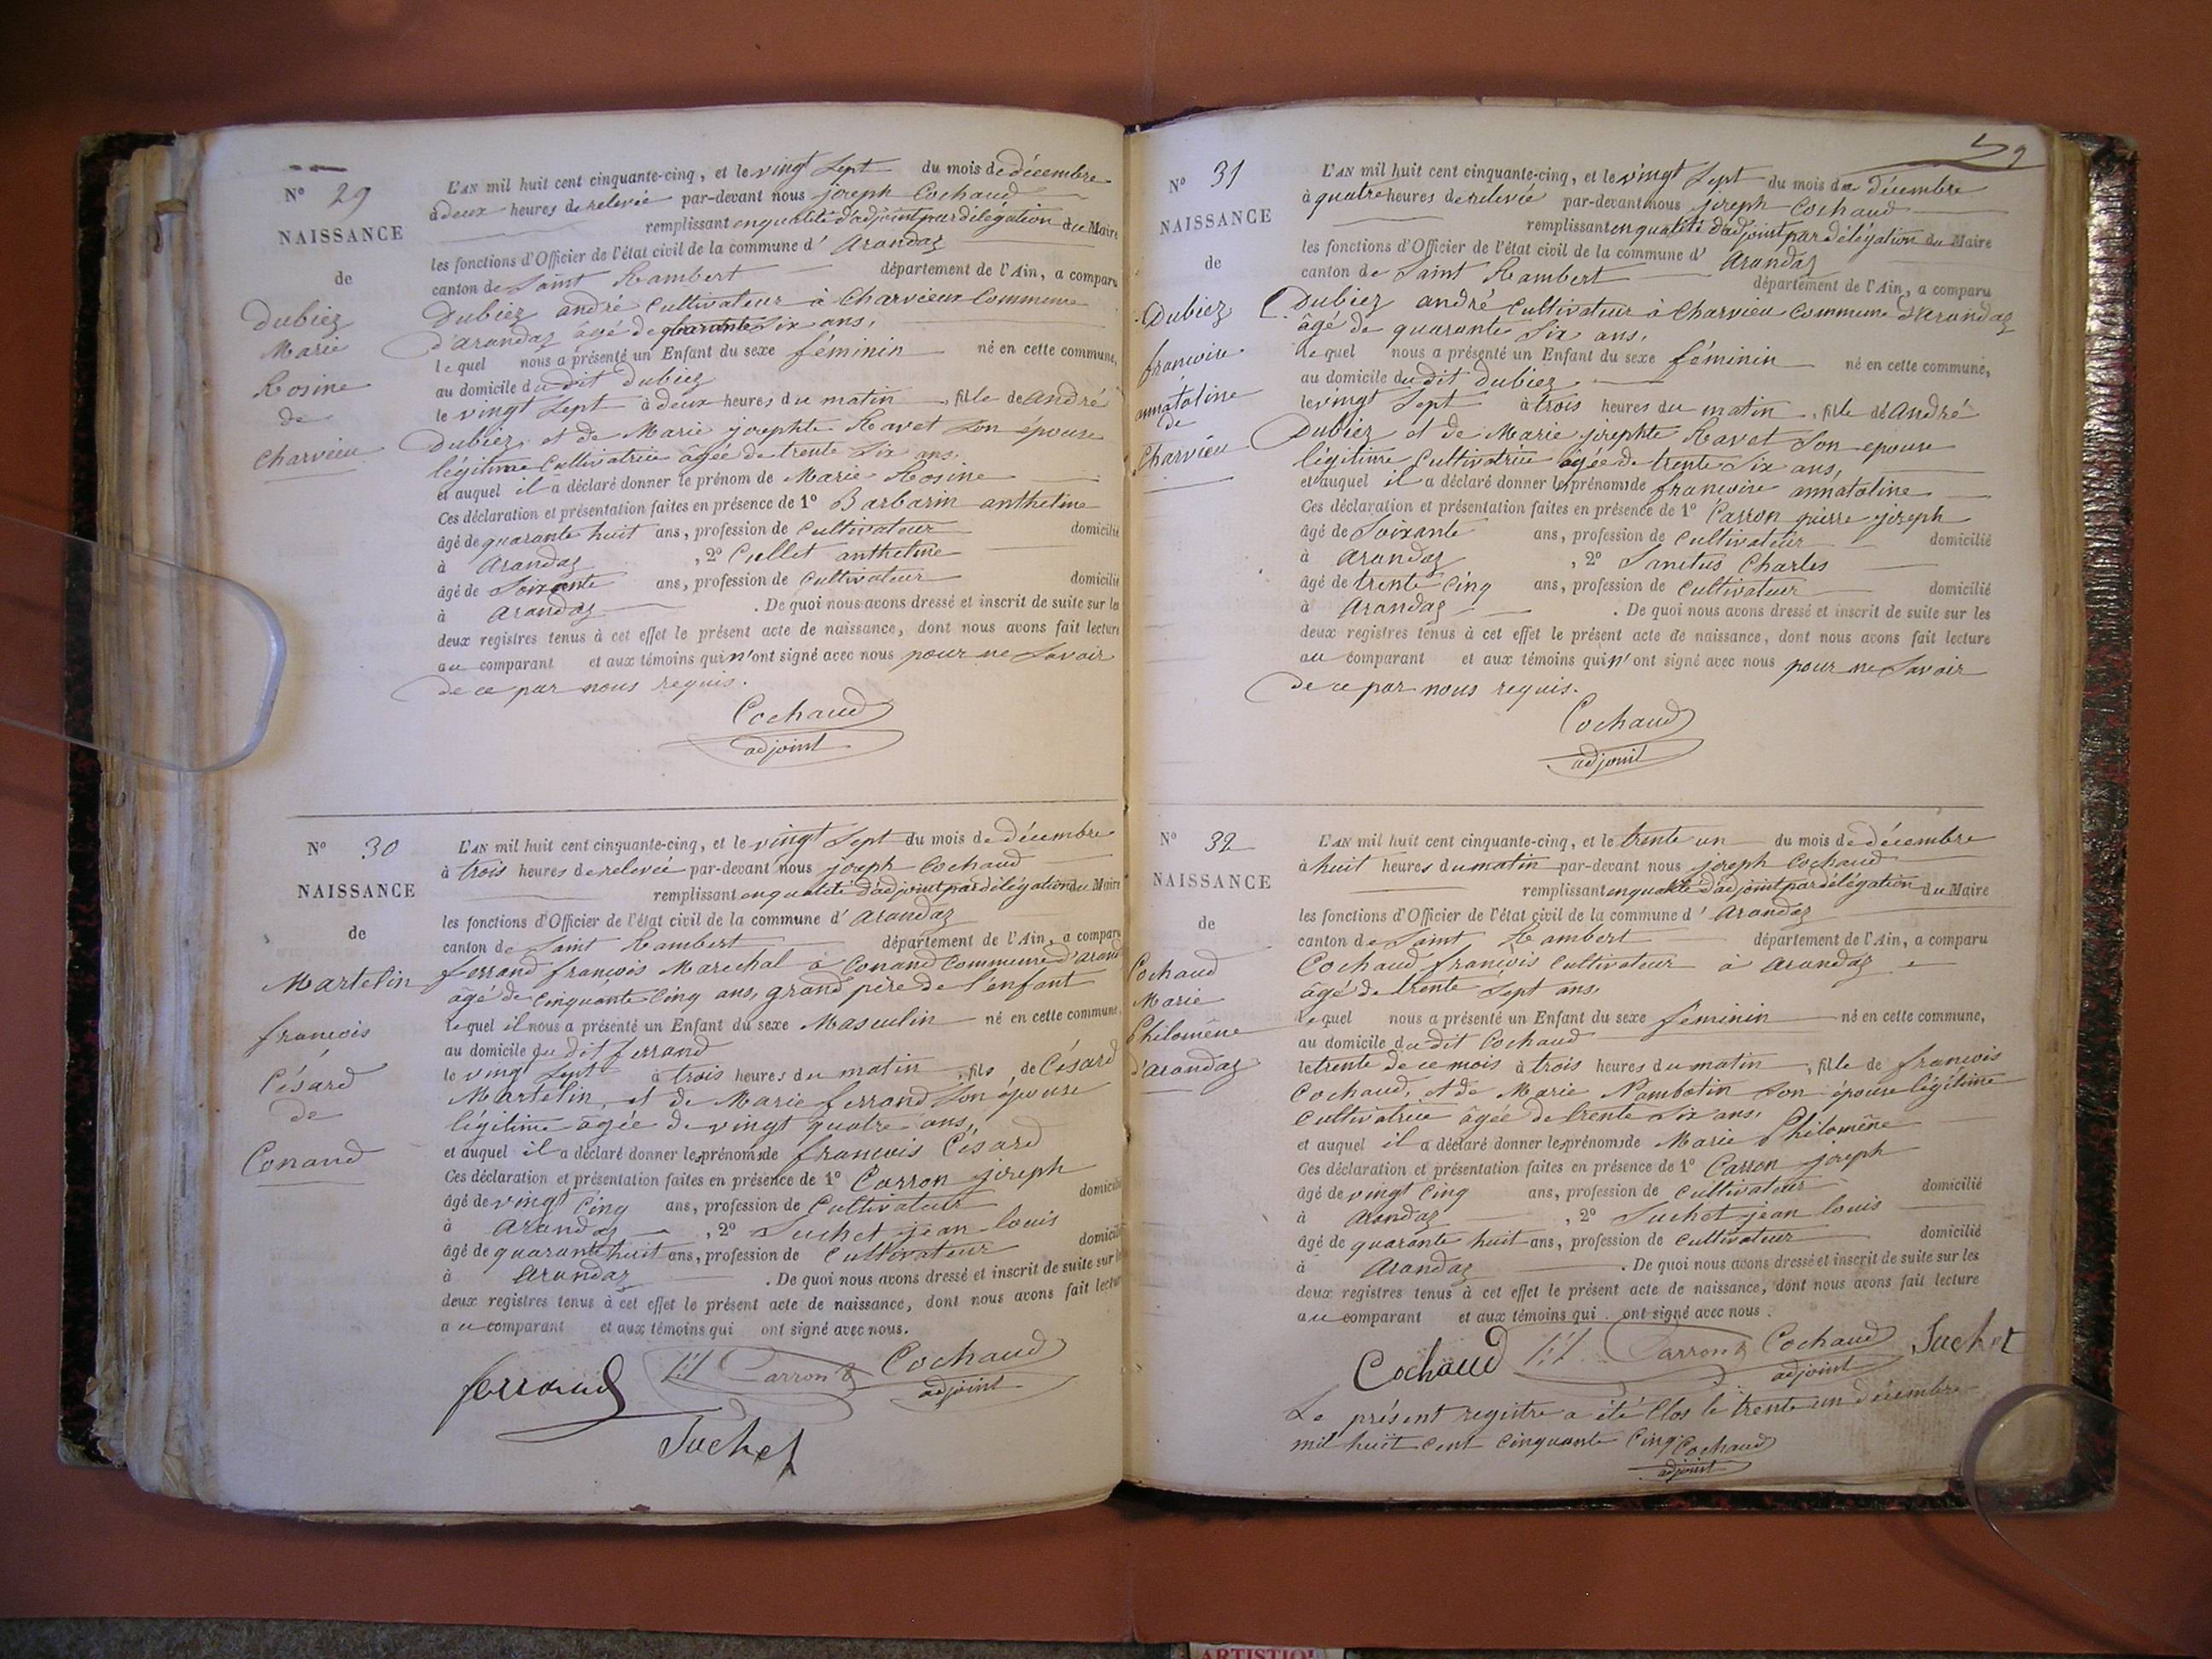 N° 29
NAISSANCE
de
Dubiez
Marie
Rosine
de
Charvieu
L'AN mil huit cent cinquante-cinq, et le vingt sept du mois de décembre
à deux heures de relevée par-devant nous joseph Cochaud
remplissant en qualité d'adjoint par délégation du Maire
les fonctions d'Officier de l'état civil de la commune d' arandaz
canton de Saint Rambert département de l'Ain, a comparu
Dubiez andré Cultivateur à Charvieux Commune
d'arandaz âgé de quarante six ans,
lequel nous a présenté un Enfant du sexe féminin né en cette commune,
au domicile du dit dubiez
le vingt sept à deux heures du matin, fille de andré
Dubiez et de Marie josephte Ravet son épouse
légitime Cultivatrice âgée de trente six ans,
et auquel il a déclaré donner le prénom de Marie Rosine
Ces déclaration et présentation faites en présence de 1° Barbarin anthelme
âgé de quarante huit ans, profession de Cultivateur domicilié
à arandaz, 2° Cullet anthelme
âgé de Soixante ans, profession de Cultivateur domicilié
à arandaz. De quoi nous avons dressé et inscrit de suite sur les
deux registres tenus à cet effet le présent acte de naissance, dont nous avons fait lecture
au comparant et aux témoins qui n'ont signé avec nous pour ne savoir
de ce par nous requis.
Cochaud
adjoint
N° 30
NAISSANCE
de
Martelin
francois
Césard
de
Conand
L'AN mil huit cent cinquante-cinq, et le vingt sept du mois de décembre
à trois heures de relevée par-devant nous joseph Cochaud
remplissant en qualité d'adjoint par délégation du Maire
les fonctions d'Officier de l'état civil de la commune d' arandaz
canton de Saint Rambert département de l'Ain, a comparu
ferrand francois Marechal à Conand Commune d'arand
âgé de cinquante cinq ans, grand père de l'enfant
lequel il nous a présenté un Enfant du sexe Masculin né en cette commune,
au domicile du dit ferrand
le vingt sept à trois heures du matin, fils de Césard
Martelin, et de Marie ferrand son épouse
légitime âgée de vingt quatre ans,
et auquel il a déclaré donner les prénoms de francois Césard
Ces déclaration et présentation faites en présence de 1° Carron joseph
âgé de vingt cinq ans, profession de Cultivateur domicilié
à arandaz, 2° Suchet jean louis
âgé de quarante huit ans, profession de Cultivateur domicilié
à arandaz. De quoi nous avons dressé et inscrit de suite sur les
deux registres tenus à cet effet le présent acte de naissance, dont nous avons fait lecture
au comparant et aux témoins qui ont signé avec nous.
ferrand Carron Cochaud
adjoint
Suchet
59
N° 31
NAISSANCE
de
Dubiez
francoise
annatoline
de
Charvieu
L'AN mil huit cent cinquante-cinq, et le vingt sept du mois de décembre
à quatre heures de relevée par-devant nous joseph Cochaud
remplissant en qualité d'adjoint par délégation du Maire
les fonctions d'Officier de l'état civil de la commune d' arandaz
canton de Saint Rambert département de l'Ain, a comparu
Dubiez andré Cultivateur à Charvieu Commune d'arandaz
âgé de quarante six ans,
lequel nous a présenté un Enfant du sexe féminin né en cette commune,
au domicile du dit dubiez
le vingt sept à trois heures du matin, fille de andré
Dubiez et de Marie josephte Ravet son epouse
légitime Cultivatrice âgée de trente six ans,
et auquel il a déclaré donner les prénoms de francoise annatoline
Ces déclaration et présentation faites en présence de 1° Carron pierre joseph
âgé de Soixante ans, profession de Cultivateur domicilié
à arandaz, 2° Sanitus Charles
âgé de trente cinq ans, profession de Cultivateur domicilié
à arandaz. De quoi nous avons dressé et inscrit de suite sur les
deux registres tenus à cet effet le présent acte de naissance, dont nous avons fait lecture
au comparant et aux témoins qui n'ont signé avec nous pour ne savoir
de ce par nous requis.
Cochaud
adjoint
N° 32
NAISSANCE
de
Cochaud
Marie
Philomène
d'arandaz
L'AN mil huit cent cinquante-cinq, et le trente un du mois de décembre
à huit heures du matin par-devant nous joseph Cochaud
remplissant en qualité d'adjoint par délégation du Maire
les fonctions d'Officier de l'état civil de la commune d' arandaz
canton de Saint Rambert département de l'Ain, a comparu
Cochaud francois Cultivateur à arandaz
âgé de trente sept ans,
lequel nous a présenté un Enfant du sexe féminin né en cette commune,
au domicile du dit Cochaud
le trente de ce mois à trois heures du matin, fille de francois
Cochaud, et de Marie Nambotin son épouse légitime
Cultivatrice âgée de trente six ans,
et auquel il a déclaré donner les prénoms de Marie Philomène
Ces déclaration et présentation faites en présence de 1° Carron joseph
âgé de vingt cinq ans, profession de Cultivateur domicilié
à arandaz, 2° Suchet jean louis
âgé de quarante huit ans, profession de Cultivateur domicilié
à arandaz. De quoi nous avons dressé et inscrit de suite sur les
deux registres tenus à cet effet le présent acte de naissance, dont nous avons fait lecture
au comparant et aux témoins qui ont signé avec nous.
Cochaud Carron Cochaud Suchet
adjoint
Le présent registre a été Clos le trente un décembre
mil huit cent cinquante cinq Cochaud
adjoint